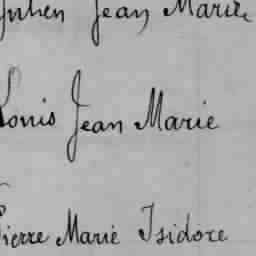 Julien Jean Marie
Louis Jean Marie
Pierre Marie Isidore